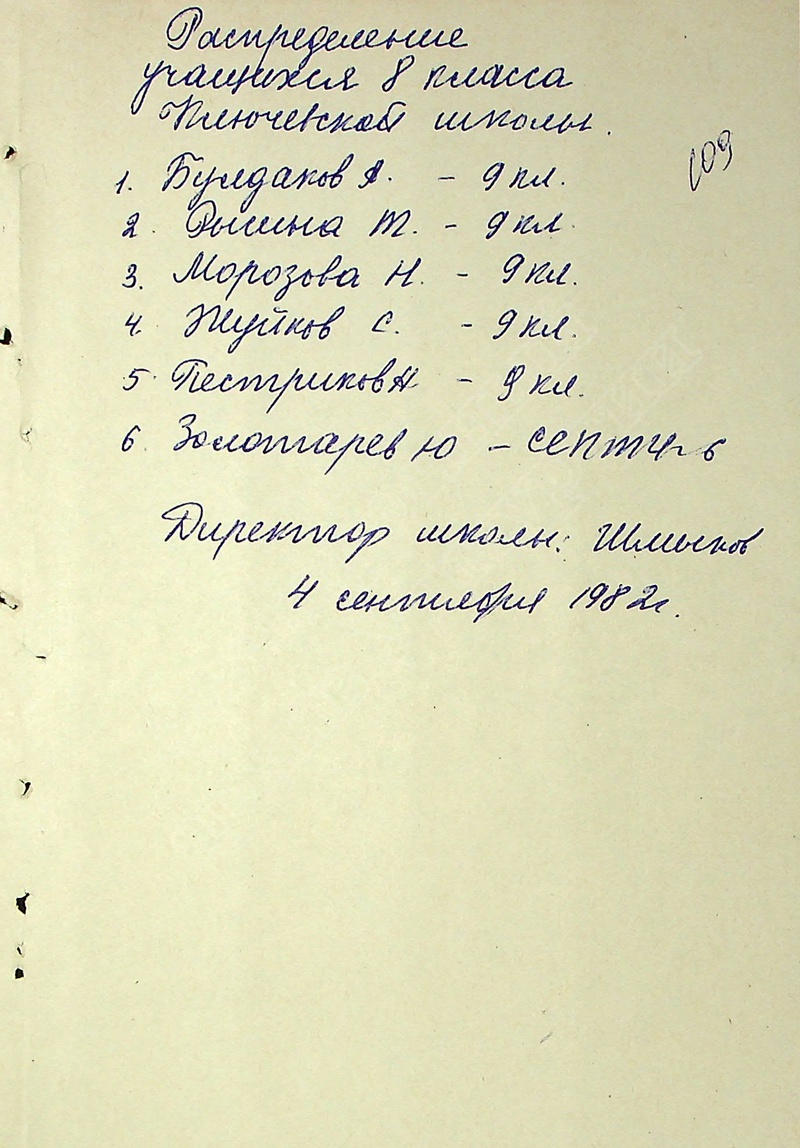 Распределение
учащихся 8 класса
Ключевской школы.
109
1. Булдаков А. - 9 кл.
2. Рысина Т. - 9 кл.
3. Морозова Н. - 9 кл.
4. Жуйков С. - 9 кл.
5. Пестриков Н - 9 кл.
6 Золотарев Ю -
Директор школы: Шмыков
4 сентября 1982г.